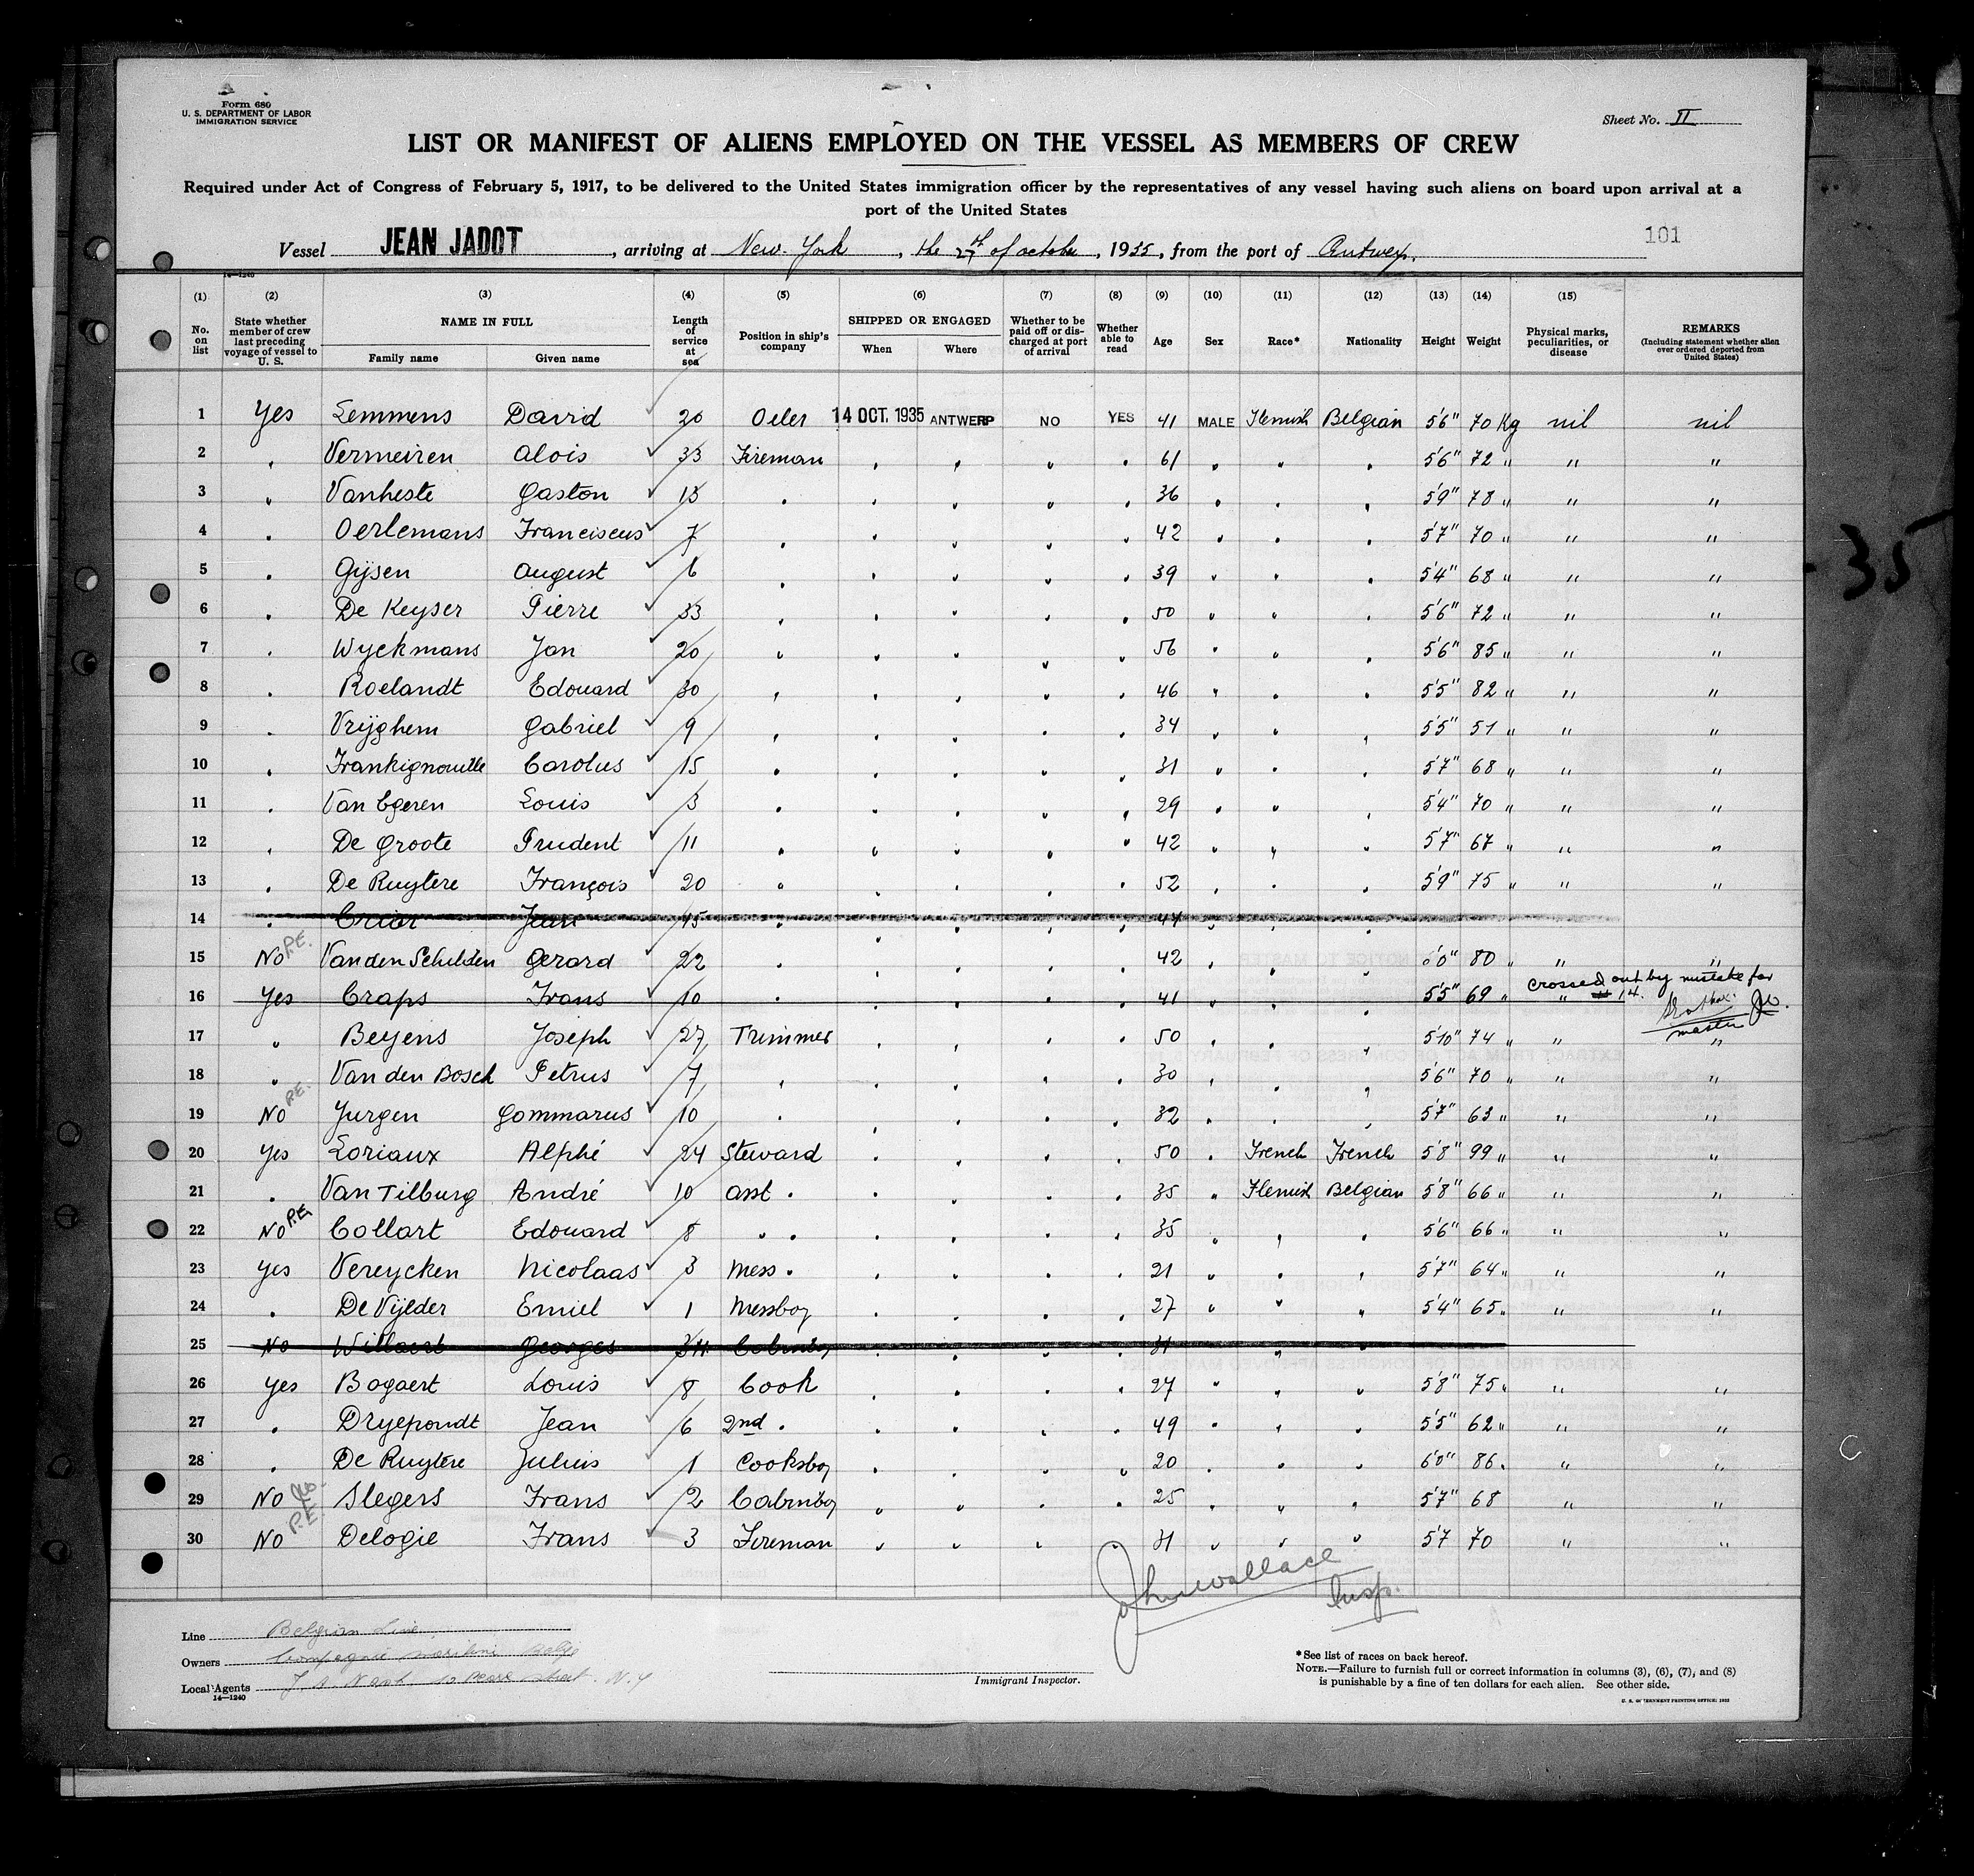 Form 680
U. S. DEPARTMENT OF LABOR
IMMIGRATION SERVICE
Sheet No. II
LIST OR MANIFEST OF ALIENS EMPLOYED ON THE VESSEL AS MEMBERS OF CREW
Required under Act of Congress of February 5, 1917, to be delivered to the United States immigration officer by the representatives of any vessel having such aliens on board upon arrival at a
port of the United States
101
Vessel JEAN JADOT, arriving at New-York, the of october, 1935, from the port of Antwerp.
14—1240
(1) (2) (3) (4) (5) (6) (7) (8) (9) (10) (11) (12) (13) (14) (15)
No. on list State whether member of crew last preceding voyage of vessel to U. S. NAME IN FULL Family name Given name Length of service at sea Position in ship's company SHIPPED OR ENGAGED When Where Whether to be paid off or discharged at port of arrival Whether able to read Age Sex Race* Nationality Height Weight Physical marks, peculiarities, or disease REMARKS (Including statement whether alien ever ordered deported from United States)
1 Yes Lemmens David 20 Oiler 14 OCT. 1935 ANTWERP NO YES 41 MALE Flemish Belgian 5'6" 70 Kg nil nil
2 " Vermeiren Alois 33 Fireman " " " " 61 " " " 5'6" 72 " " "
3 " Vanheste Gaston 13 " " " " " 36 " " " 5'9" 78 " " "
4 " Oerlemans Franciscus 7 " " " " " 42 " " " 5'7" 70 " " "
5 " Gijsen August 6 " " " " " 39 " " " 5'4" 68 " " "
6 " De Keyser Pierre 33 " " " " " 50 " " " 5'6" 72 " " "
7 " Wyckmans Jan 20 " " " " " 56 " " " 5'6" 85 " " "
8 " Roelandt Edouard 30 " " " " " 46 " " " 5'5" 82 " " "
9 " Vrijghem Gabriel 9 " " " " " 34 " " " 5'5" 51 " " "
10 " Frankignoulle Carolus 15 " " " " " 31 " " " 5'7" 68 " " "
11 " Van Egeren Louis 3 " " " " " 29 " " " 5'4" 70 " " "
12 " De Groote Prudent 11 " " " " " 42 " " " 5'7" 67 " " "
13 " De Ruytere François 20 " " " " " 52 " " " 5'9" 75 " " "
14 " Jean 15 " " " " " 44 " " "
15 No P.E. Van den Schulden Gerard 22 " " " " " 42 " " " 6'0" 80 " " "
16 Yes Craps Frans 10 " " " " " 41 " " " 5'5" 69 " " crossed out by mistake for 14.
master
17 " Beyens Joseph 27 Trimmer " " " " 50 " " " 5'10" 74 " " "
18 " Van den Bosch Petrus 7 " " " " " 30 " " " 5'6" 70 " " "
19 No P.E. Jurgen Gommarus 10 " " " " " 32 " " " 5'7" 63 " " "
20 Yes Loriaux Alphé 24 Steward " " " " 50 " French French 5'8" 99 " " "
21 " Van Tilburg André 10 asst " " " " " 35 " Flemish Belgian 5'8" 66 " " "
22 No P.E. Collart Edouard 8 " " " " " " 35 " " " 5'6" 66 " " "
23 Yes Vereycken Nicolaas 3 Mess " " " " " 21 " " " 5'7" 64 " " "
24 " De Vijlder Emiel 1 Messboy " " " " 27 " " " 5'4" 65 " " "
25 No Willaert Georges Cabinboy " " " " 31 " " "
26 Yes Bogaert Louis 8 Cook " " " " 27 " " " 5'8" 75 " " "
27 " Dryepondt Jean 6 2nd " " " " " 49 " " " 5'5" 62 " " "
28 " De Ruytere Julius 1 Cooksboy " " " " 20 " " " 6'0" 86 " " "
29 No Slegers Frans 2 Cabinboy " " " " 25 " " " 5'7" 68 " "
30 No P.E. Delogie Frans 3 Fireman " " " " 31 " " " 5'7 70 " "
John Wallace
Insp.
Line Belgian Line
Owners Compagnie Maritime Belge
Local Agents street. N.Y
14—1240
Immigrant Inspector.
*See list of races on back hereof.
NOTE.—Failure to furnish full or correct information in columns (3), (6), (7), and (8)
is punishable by a fine of ten dollars for each alien. See other side.
35